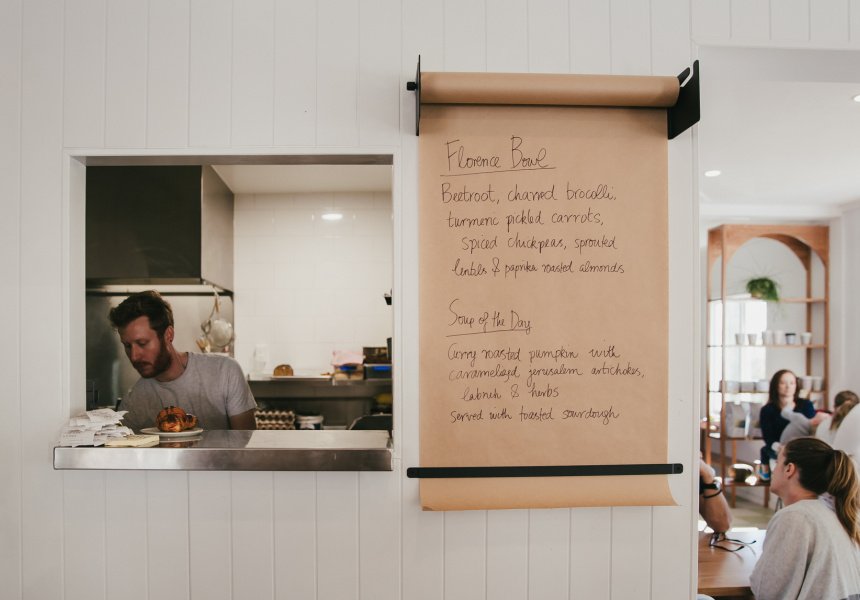 Florence Bowl
Beetroot, charred brocolli,
turmeric pickled carrots,
spiced chickpeas, sprouted
lentils & paprika roasted almonds
Soup of the Day
Curry roasted pumpkin with
caramelised jerusalem artichokes,
labneh & herbs
served with toasted sourdough